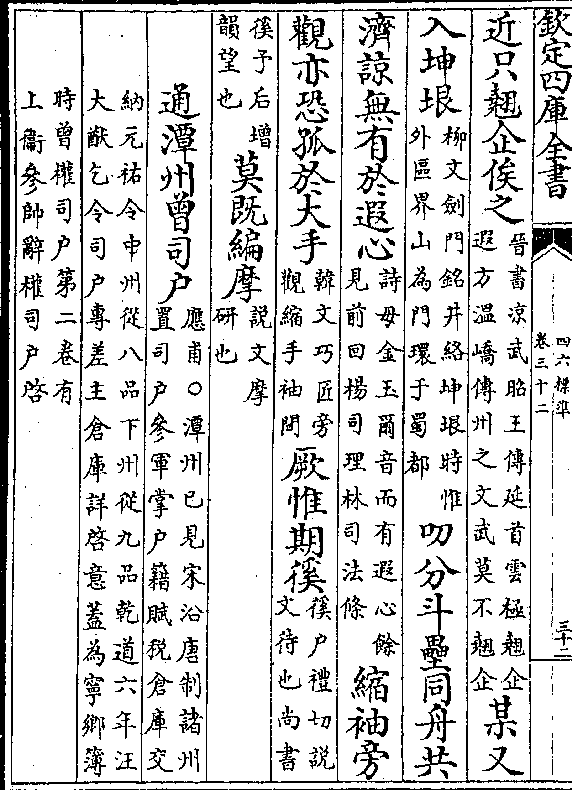 欽定四庫全書
四六標準
卷三十二
三十二
近只翹企俟之 晉書涼武昭王傳延首雲極翹企
遐方溫嶠傳州之文武莫不翹企 某又
入坤垠 柳文劍門銘井絡坤垠時惟
外區界山為門環于蜀都 叨分斗壘同舟共
濟諒無有於遐心 詩毋金玉爾音而有遐心餘
見前回楊司理林司法條 縮袖旁
觀亦恐孤於大手 韓文巧匠旁
觀縮手袖間 厥惟期徯 徯户禮切説
文待也尚書
徯予后增
韻望也 莫既編摩 説文摩
研也
通潭州曾司户 應甫○潭州已見宋沿唐制諸州
置司户參軍掌户籍賦税倉庫交
納元祐令中州從八品下州從九品乾道六年汪
大猷乞令司户專差主倉庫詳啓意蓋為寧鄉簿
時曾權司户第二卷有
上衞參帥辭權司户啓